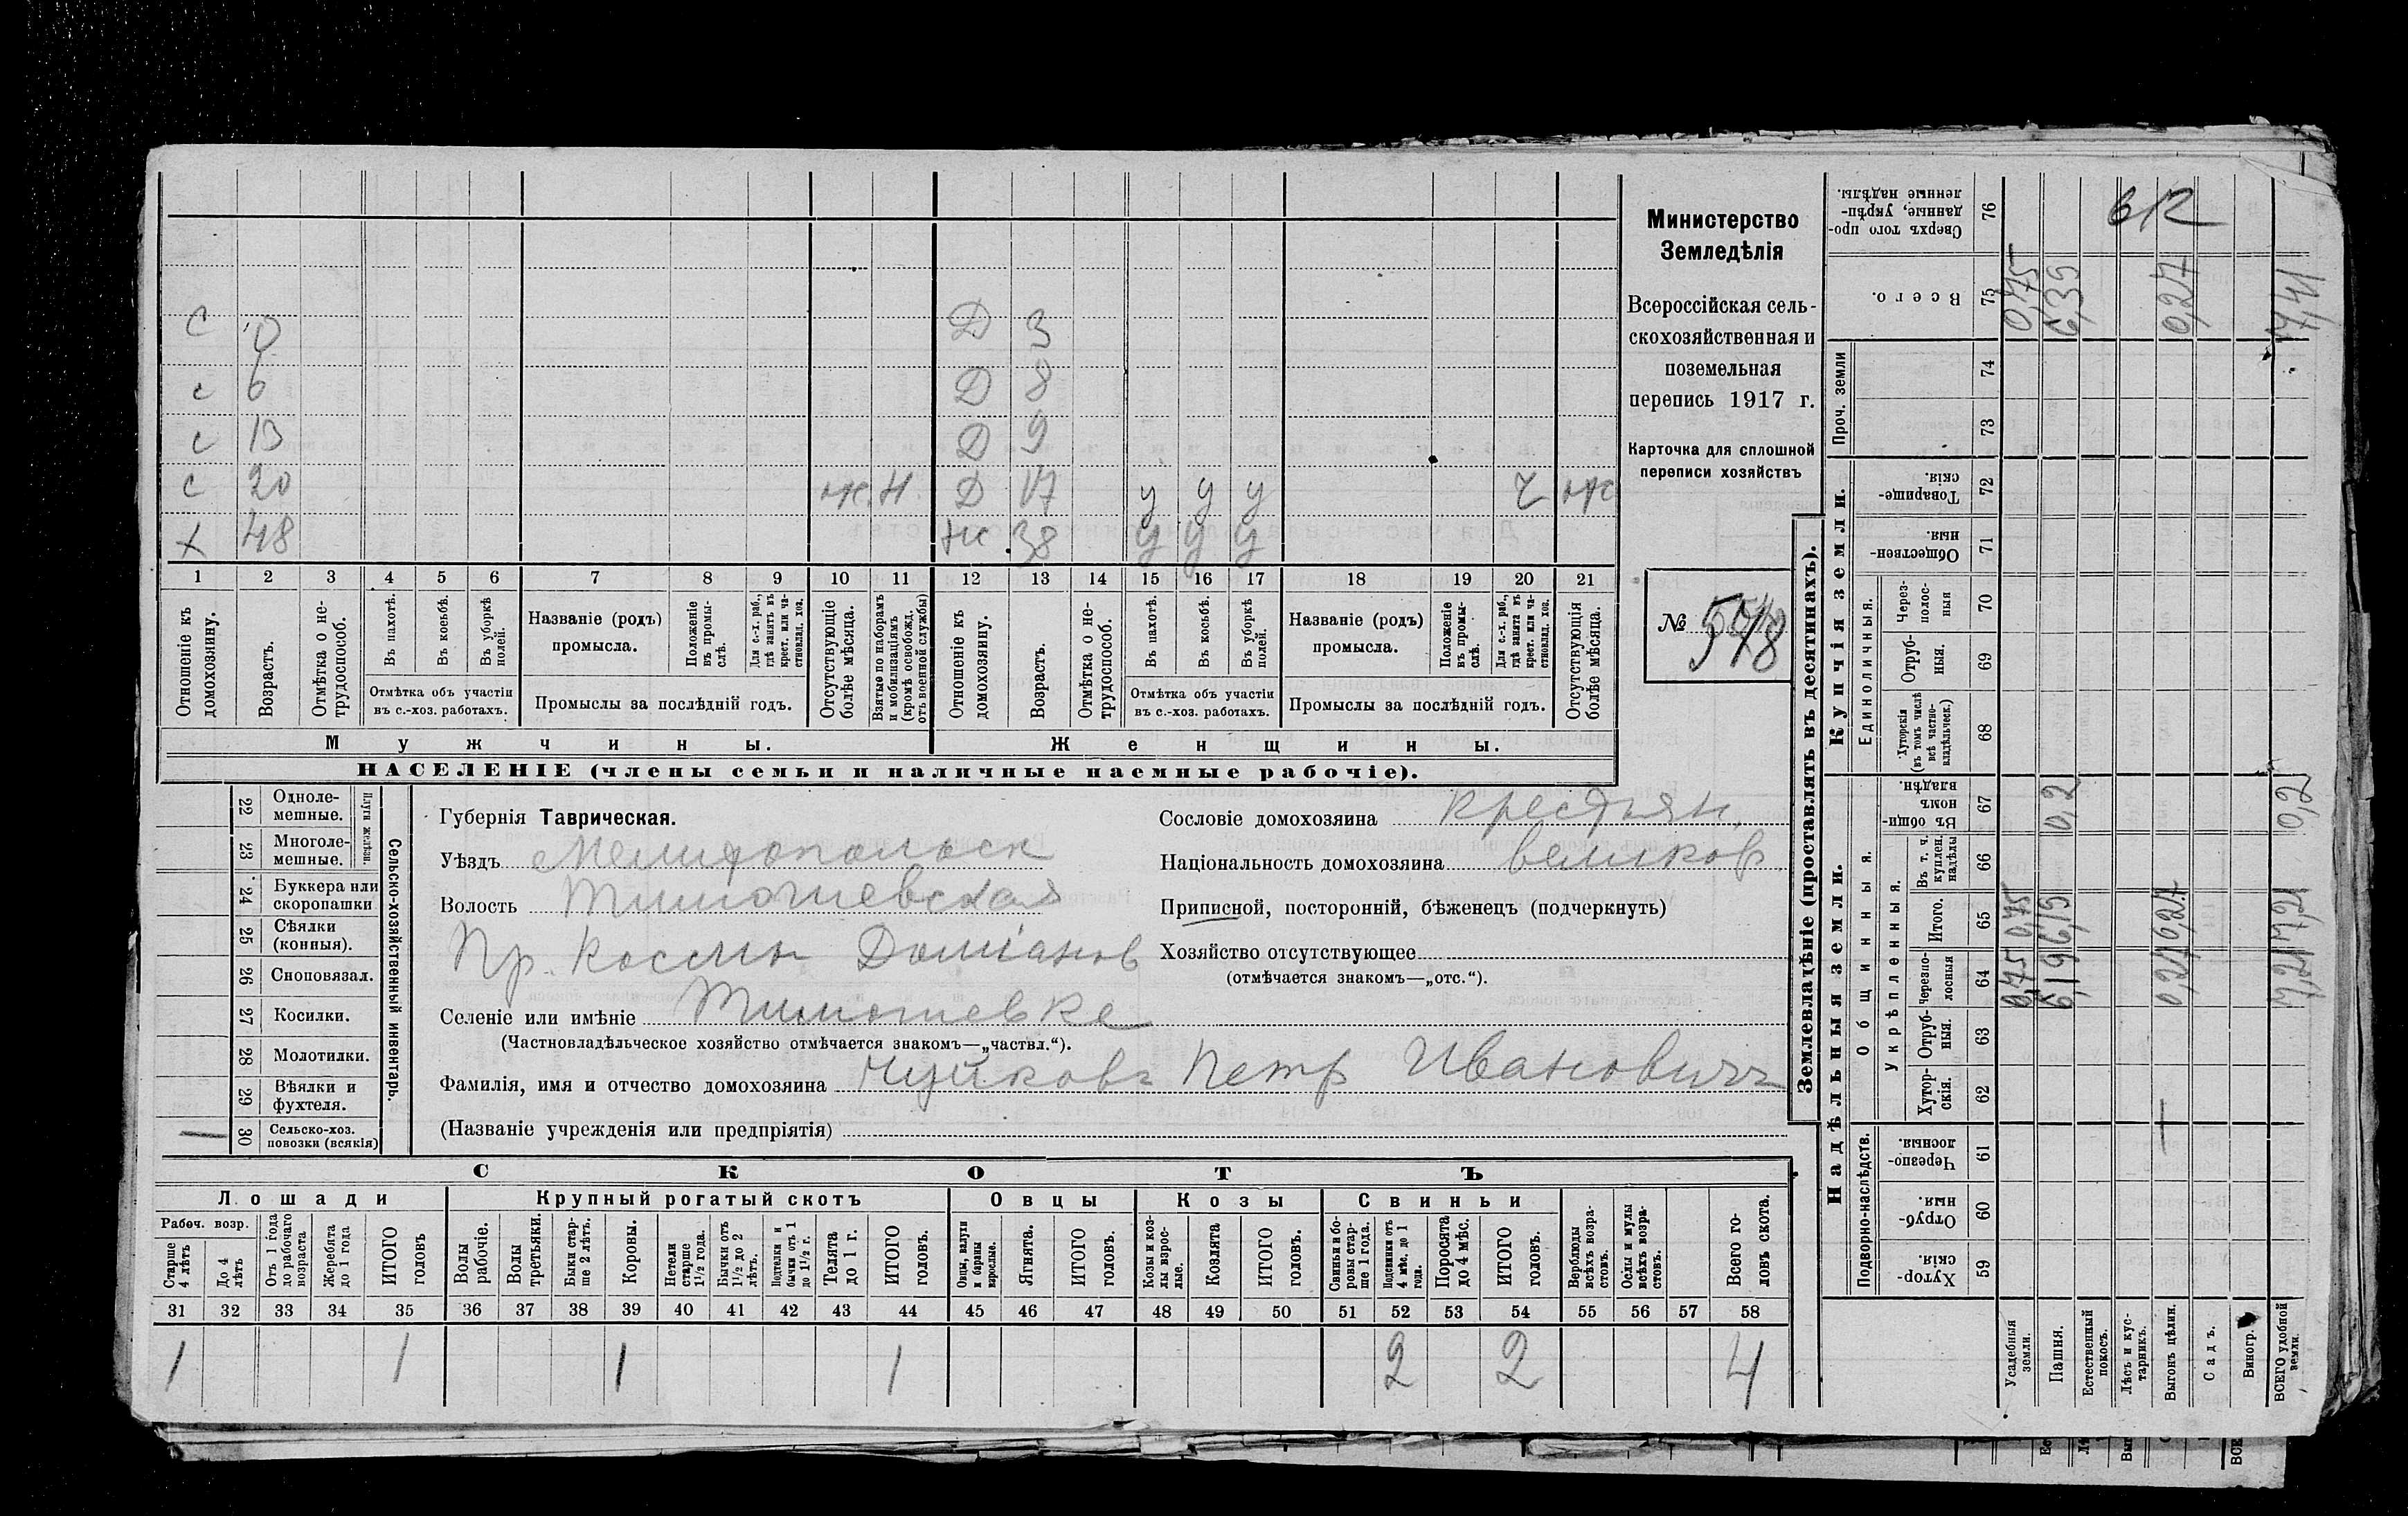 Министерство
Земледѣлія
Всероссійская сель-
скохозяйственная и
поземельная
перепись 1917 г.
Карточка для сплошной
переписи хозяйствъ
№ 578
С 0 Д 3
с 6 Д 8
с 13 Д 9
с 20 ж Н Д 17 у у у Ч ж
х 48 Ж 38 у у у
1 2 3 4 5 6 7 8 9 10 11 12 13 14 15 16 17 18 19 20 21
Отношеніе къ домохозяину.
Возрастъ.
Отмѣтка о не-трудоспособ.
Въ пахотѣ.
Въ косьбѣ.
Въ уборкѣ полей.
Отмѣтка объ участіи
въ с.-хоз. работахъ.
Названіе (родъ)
промысла.
Положеніе въ промы-слѣ.
Для с.-х. раб., гдѣ занятъ въ крест. или ча-стновлад. хоз.
Промыслы за послѣдній годъ.
Отсутствующіе болѣе мѣсяца.
Взятые по наборамъ и мобилизаціямъ (кромѣ освобожд. отъ военной службы)
Отношеніе къ домохозяину.
Возрастъ.
Отмѣтка о не-трудоспособ.
Въ пахотѣ.
Въ косьбѣ.
Въ уборкѣ полей.
Отмѣтка объ участіи
въ с.-хоз. работахъ.
Названіе (родъ)
промысла.
Положеніе въ промы-слѣ.
Для с.-х. раб., гдѣ занята въ крест. или ча-стновлад. хоз.
Промыслы за послѣдній годъ.
Отсутствующія болѣе мѣсяца.
Мужчины. Женщины.
НАСЕЛЕНІЕ (члены семьи и наличные наемные рабочіе).
22 Одноле-мешные.
23 Многоле-мешные.
Плуги желѣзн.
24 Буккера или скоропашки
25 Сѣялки (конныя).
26 Сноповязал.
27 Косилки.
28 Молотилки.
29 Вѣялки и фухтеля.
30 Сельско-хоз. повозки (всякія)
Сельско-хозяйственный инвентарь.
Губернія Таврическая.
Уѣздъ Мелитопольск
Волость Тимошевская
Пр. Космы Доміанов
Селеніе или имѣніе Тимошевке
(Частновладѣльческое хозяйство отмѣчается знакомъ—„частвл.“).
Фамилія, имя и отчество домохозяина Чуйковъ Петр Ивановичъ
(Названіе учрежденія или предпріятія)
Сословіе домохозяина крестьян.
Національность домохозяина великор
Приписной, посторонній, бѣженецъ (подчеркнуть)
Хозяйство отсутствующее
(отмѣчается знакомъ—„отс.“).
СКОТЪ
Лошади Крупный рогатый скотъ Овцы Козы Свиньи
Рабоч. возр.
Старше 4 лѣтъ
До 4 лѣтъ
Отъ 1 года до рабочаго возраста
Жеребята до 1 года
ИТОГО головъ
Волы рабочіе.
Волы третьяки.
Быки стар-ше 2 лѣтъ.
Коровы.
Нетели старше 1½ года.
Бычки отъ 1½ до 2 лѣтъ.
Подтелки и бычки отъ 1 до 1½ г.
Телята до 1 г.
ИТОГО головъ.
Овцы, валухи и бараны взрослые.
Ягнята.
ИТОГО головъ.
Козы и коз-лы взрос-лые.
Козлята
ИТОГО головъ.
Свиньи и бо-ровы стар-ше 1 года.
Подсвинки отъ 4 мѣс. до 1 года.
Поросята до 4 мѣс.
ИТОГО головъ.
Верблюды всѣхъ возра-стовъ.
Ослы и мулы всѣхъ возра-стовъ.
Всего го-ловъ скота.
31 32 33 34 35 36 37 38 39 40 41 42 43 44 45 46 47 48 49 50 51 52 53 54 55 56 57 58
1 1 1 1 2 2 4
Землевладѣніе (проставлять въ десятинахъ).
Надѣльныя земли. Купчія земли. Проч. земли
Подворно-наслѣдств.
Общинныя.
Укрѣпленныя.
Единоличныя.
59 Хутор-скія.
60 Отруб-ныя.
61 Черезпо-лосныя.
62 Хутор-скія.
63 Отруб-ныя.
64 Черезпо-лосныя
65 Итого.
66 Въ т. ч. куплен. надѣлы
67 Въ общи-номъ владѣн.
68 Хуторскія (въ томъ числѣ всѣ частно-владѣльческ.)
69 Отруб-ныя.
70 Через-полос-ныя
71 Обществен-ныя.
72 Товарище-скія.
73
74
75 Всего.
76 Сверхъ того про-данные, укрѣп-ленные надѣлы.
Усадебныя земли. 0,75 0,75 0,75
Пашня. 6,19 6,19 0,2 6,39
Естественный покосъ.
Лѣсъ и кус-тарникъ.
Выгонъ цѣлин. 0,27 0,27 0,27
Садъ.
Виногр.
ВСЕГО удобной земли. 7,21 7,21 0,2 7,41